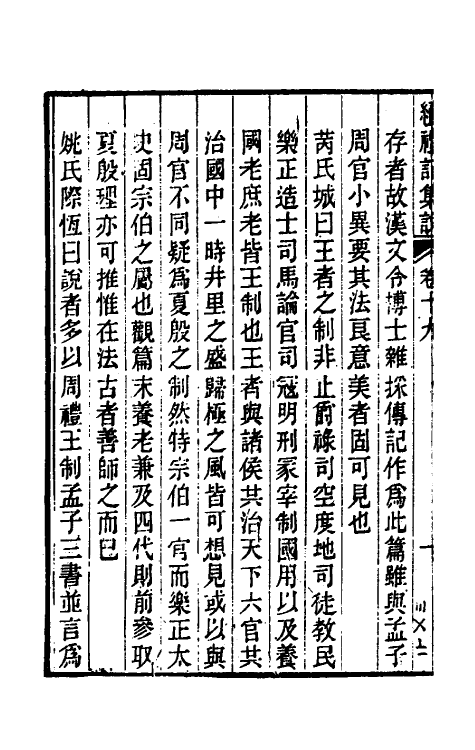 續禮記集說　卷十九　十
存者故漢文令博士雜採傳記作爲此篇雖與孟子
周官小異要其法良意美者固可見也
芮氏城曰王者之制非止爵祿司空度地司徒教民
樂正造士司馬論官司寇明刑冢宰制國用以及養
國老庶老皆王制也王者與諸侯共治天下六官共
治國中一時井里之盛歸極之風皆可想見或以與
周官不同疑爲夏殷之制然特宗伯一官而樂正太
史固宗伯之屬也觀篇末養老兼及四代則前參取
夏殷理亦可推惟在法古者善師之而已
姚氏際恆曰說者多以周禮王制孟子三書並言爲